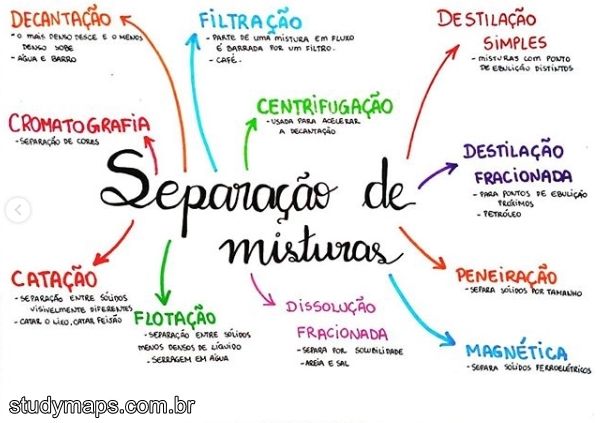 DECANTAÇÃO
- O MAIS DENSO DESCE E O MENOS
DENSO SOBE
- ÁGUA E BARRO
FILTRAÇÃO
- PARTE DE UMA MISTURA EM FLUXO
É BARRADA POR UM FILTRO.
- CAFÉ.
DESTILAÇÃO
SIMPLES
- MISTURAS COM PONTO
DE EBULIÇÃO DISTINTOS
CENTRIFUGAÇÃO
- USADA PARA ACELERAR
A DECANTAÇÃO
CROMATOGRAFIA
- SEPARAÇÃO DE CORES
DESTILAÇÃO
FRACIONADA
- PARA PONTOS DE EBULIÇÃO
PRÓXIMOS
- PETRÓLEO
Separação de
misturas
CATAÇÃO
- SEPARAÇÃO ENTRE SÓLIDOS
VISIVELMENTE DIFERENTES
- CATAR O LIXO, CATAR FEIJÃO
FLOTAÇÃO
- SEPARAÇÃO ENTRE SÓLIDOS
MENOS DENSOS DE LÍQUIDO
- SERRAGEM EM ÁGUA
DISSOLUÇÃO
FRACIONADA
- SEPARA POR SOLUBILIDADE
- AREIA E SAL
PENEIRAÇÃO
- SEPARA SÓLIDOS POR TAMANHO
MAGNÉTICA
- SEPARA SÓLIDOS FERROELÉTRICOS
studymaps.com.br